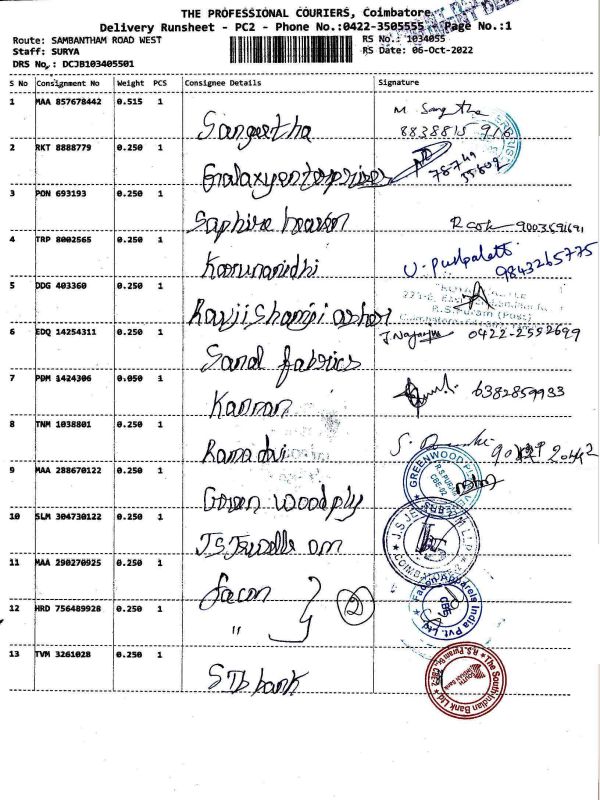 THE PROFESSIONAL COURIERS, Coimbatore
Delivery Runsheet - PC2 - Phone No.:0422-3505555 - Page No.:1
Route: SAMBANTHAM ROAD WEST RS No.: 1034055
Staff: SURYA RS Date: 06-Oct-2022
DRS No.: DCJB103405501
S No Consignment No Weight PCS Consignee Details Signature
1 MAA 857678442 0.515 1
Sangeetha 8838815 916
2 RKT 8888779 0.250 1
Galaxyenterprises
3 PON 693193 0.250 1
Saphire 9003591691
4 TRP 8002565 0.250 1
Karunanidhi 9843265775
5 DDG 403360 0.250 1
Ravji Shamji R.S.Puram (Post)
6 EDQ 14254311 0.250 1
Sand fabrics 0422-2552699
7 PDM 1424306 0.050 1
Kannan 6382859933
8 TNM 1038801 0.250 1
9 MAA 288670122 0.250 1
Green woodply GREENWOOD R.S.PURAM CBE-02
10 SLM 304730122 0.250 1
11 MAA 290270925 0.250 1
facon 2 Facon Apparels India Pvt. Ltd. CBE
12 HRD 756489928 0.250 1
"
13 TVM 3261028 0.250 1
SIb bank The South Indian Bank Ltd. R.S. Puram